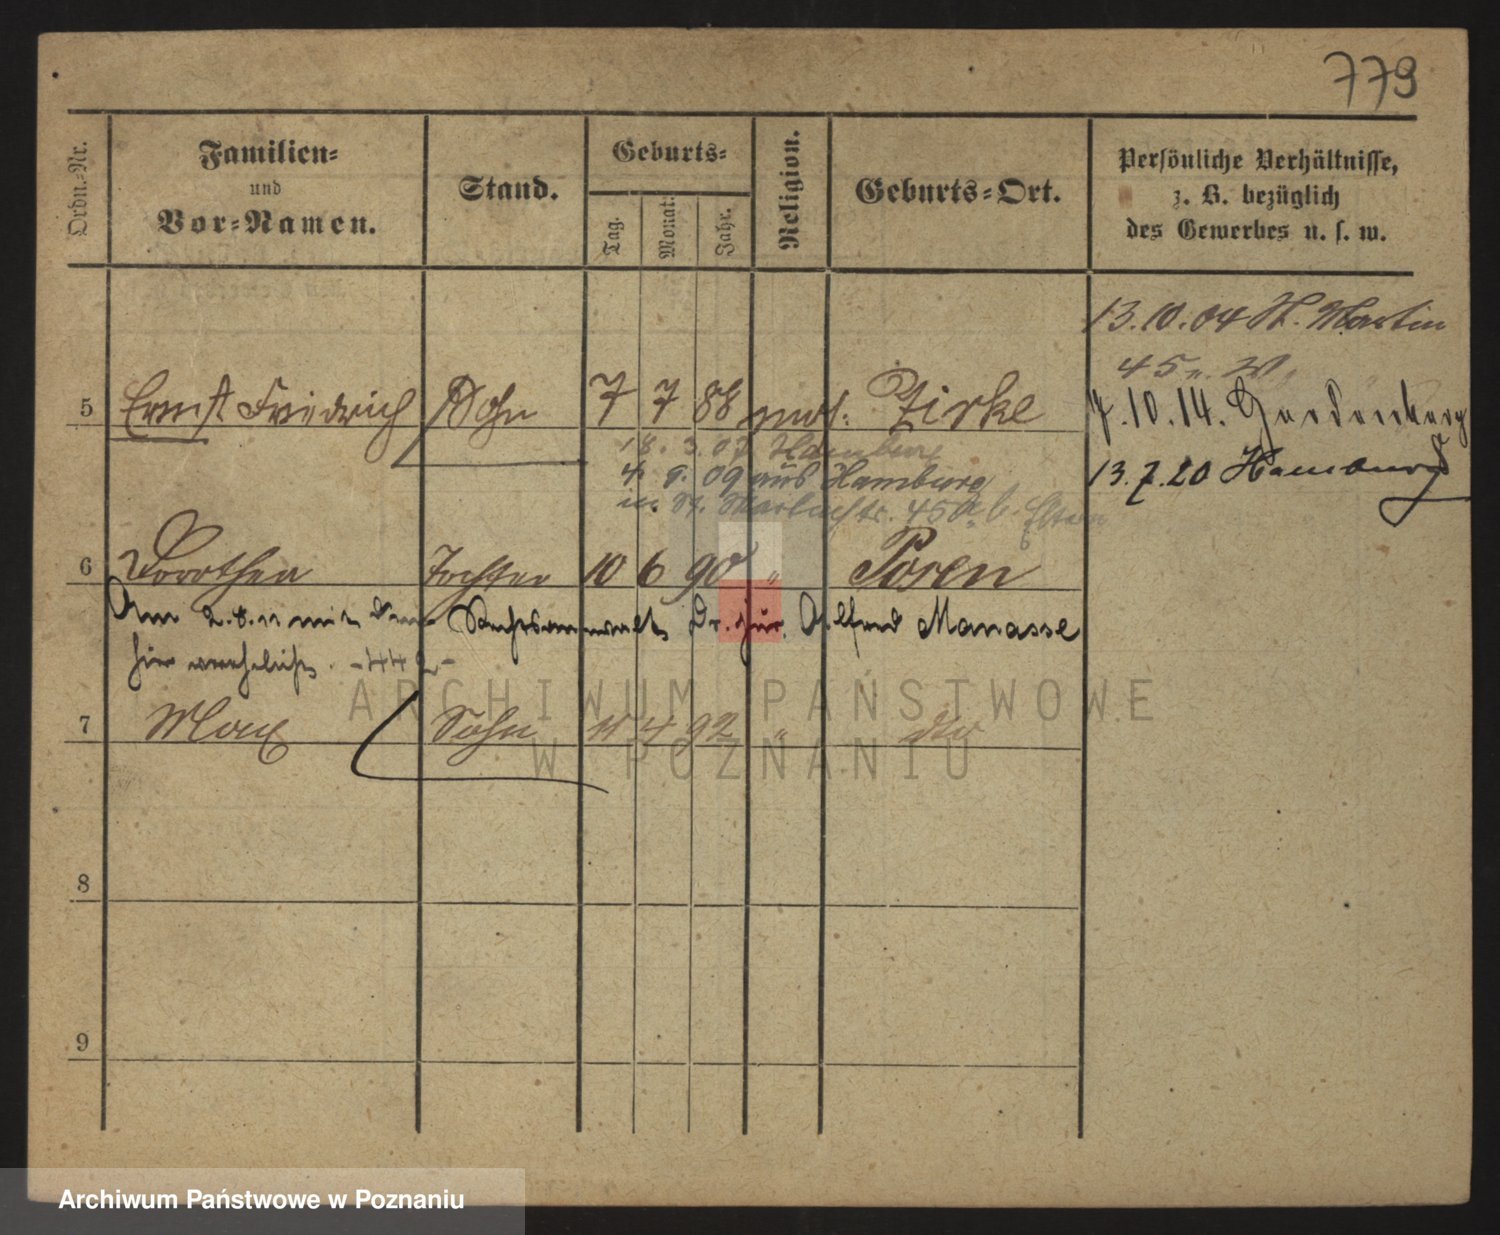 779
Ordn.-Nr.
Familien-
und
Vor-Namen.
Stand.
Geburts-
Tag.
Monat.
Jahr.
Religion.
Geburts-Ort.
Persönliche Verhältnisse,
z. B. bezüglich
des Gewerbes u. s. w.
13.10.04 St. Martin
45
5 Ernst Friedrich Sohn 7 7 88 mos. Zirke
7.10.14.
18. 3. 07 Hamburg
4. 9. 09 aus Hamburg
13.7.20 Hamburg
in St. 45 b. Eltern
6 Dorothea Tochter 10 6 90 " Posen
Am 2.8.11 mit dem Rechtsanwalt Dr. jur. Alfred Manasse
hier verehelicht. -442-
7 Max Sohn 11 4 92 " dto
8
9
ARCHIWUM PAŃSTWOWE
W POZNANIU
Archiwum Państwowe w Poznaniu